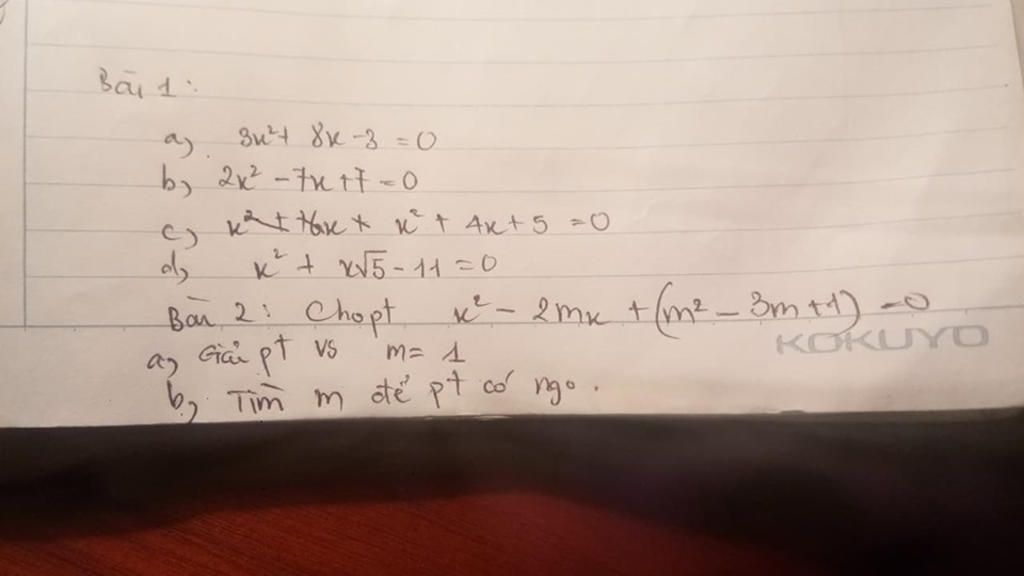 Bài 1:
a) 3x² + 8x - 3 = 0
b) 2x² - 7x + 7 = 0
c) x² + 4x + 5 = 0
d) x² + x√5 - 11 = 0
Bài 2: Cho pt x² - 2mx + (m² - 3m + 1) = 0
KOKUYO
a) Giải pt vs m = 1
b) Tìm m để pt có ngo.